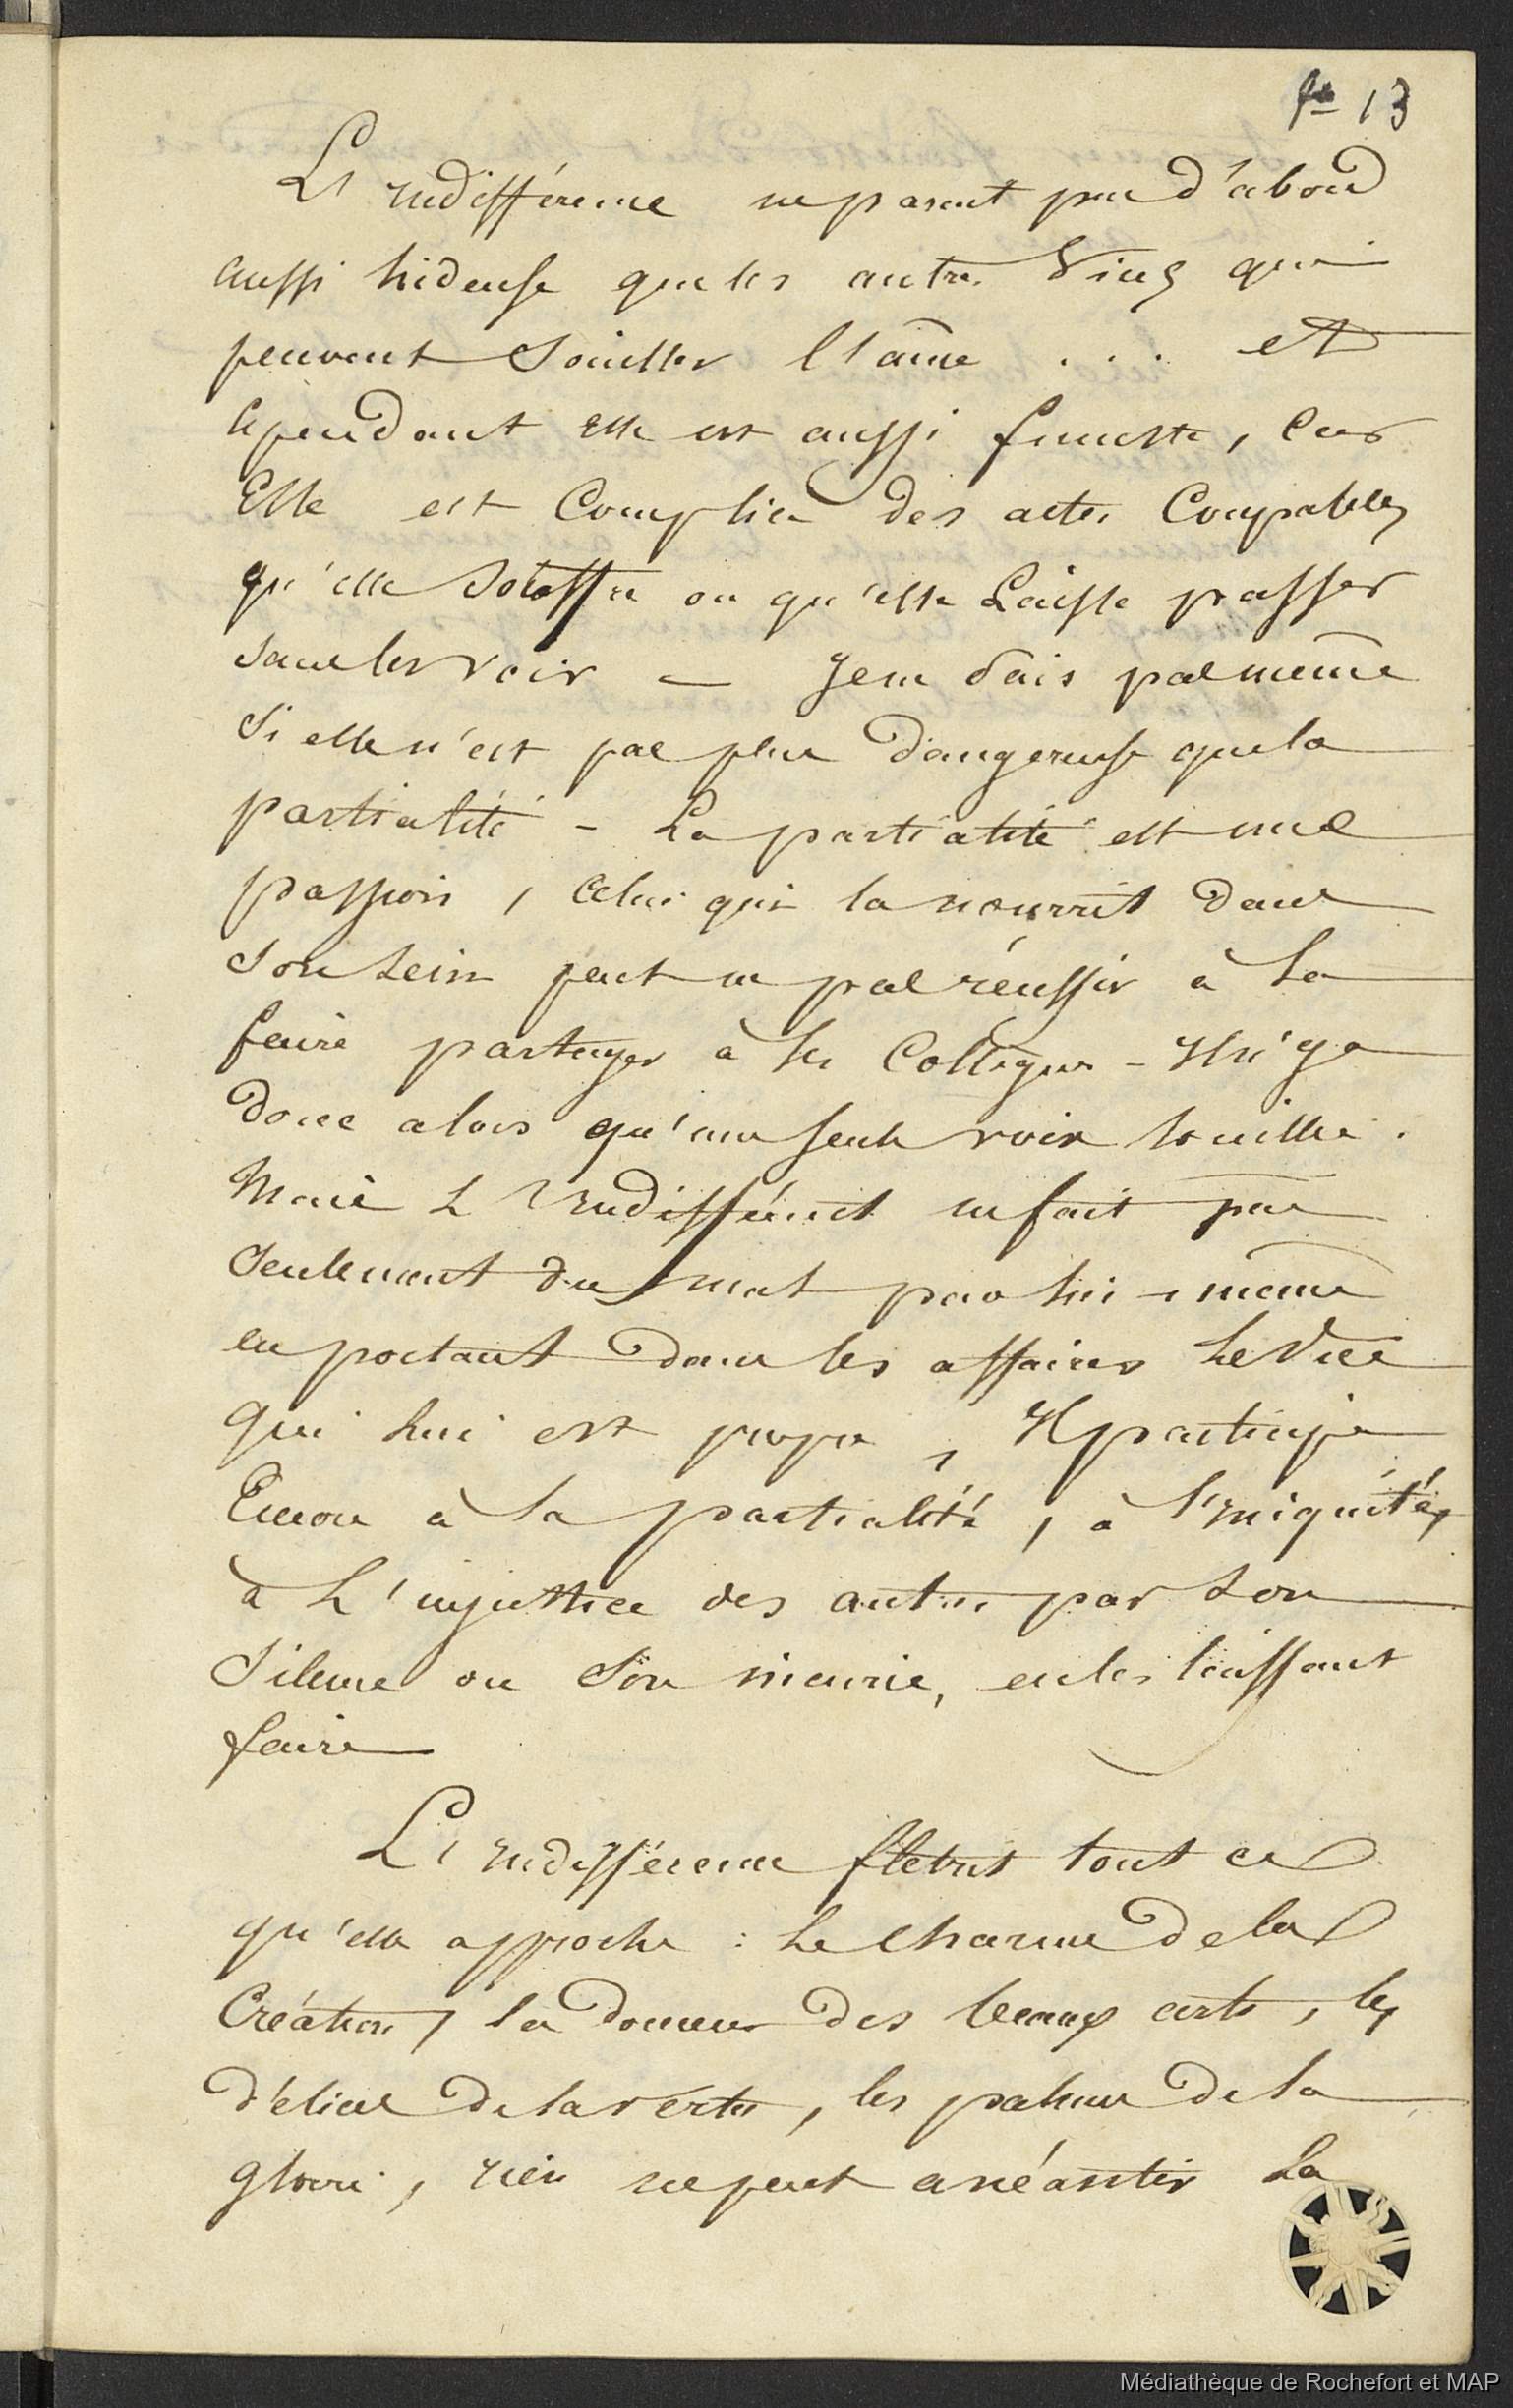 fo 13
L'Indifférence ne parait pas d'abord
aussi hideuse que les autres vices qui
peuvent souiller l'âme . . . et
cependant elle est aussi funeste, car
Elle est Complice des actes Coupables
qu'elle souffre ou qu'elle Laisse passer
sans les voir — Je ne sais pas même
si elle n'est pas plus dangereuse que la
partialité - La partialité est une
passion, celui qui la nourrit dans
son sein peut ne pas réussir à la
faire partager à ses Collègues - Il n'y a
donc alors qu'une seule voix souillée.
Mais L'Indifférent ne fait pas
seulement du mal par lui-même
en portant dans les affaires Le Vice
qui lui est propre, Il participe
Encore à la partialité, à l'iniquité,
à L'injustice des autres par son
silence ou son incurie, en les laissant
faire
L'Indifférence flétrit tout ce
qu'elle approche : Le charme de la
Création, la douceur des beaux arts, les
délices de la vertu, les palmes de la
gloire, rien ne peut anéantir La
Médiathèque de Rochefort et MAP